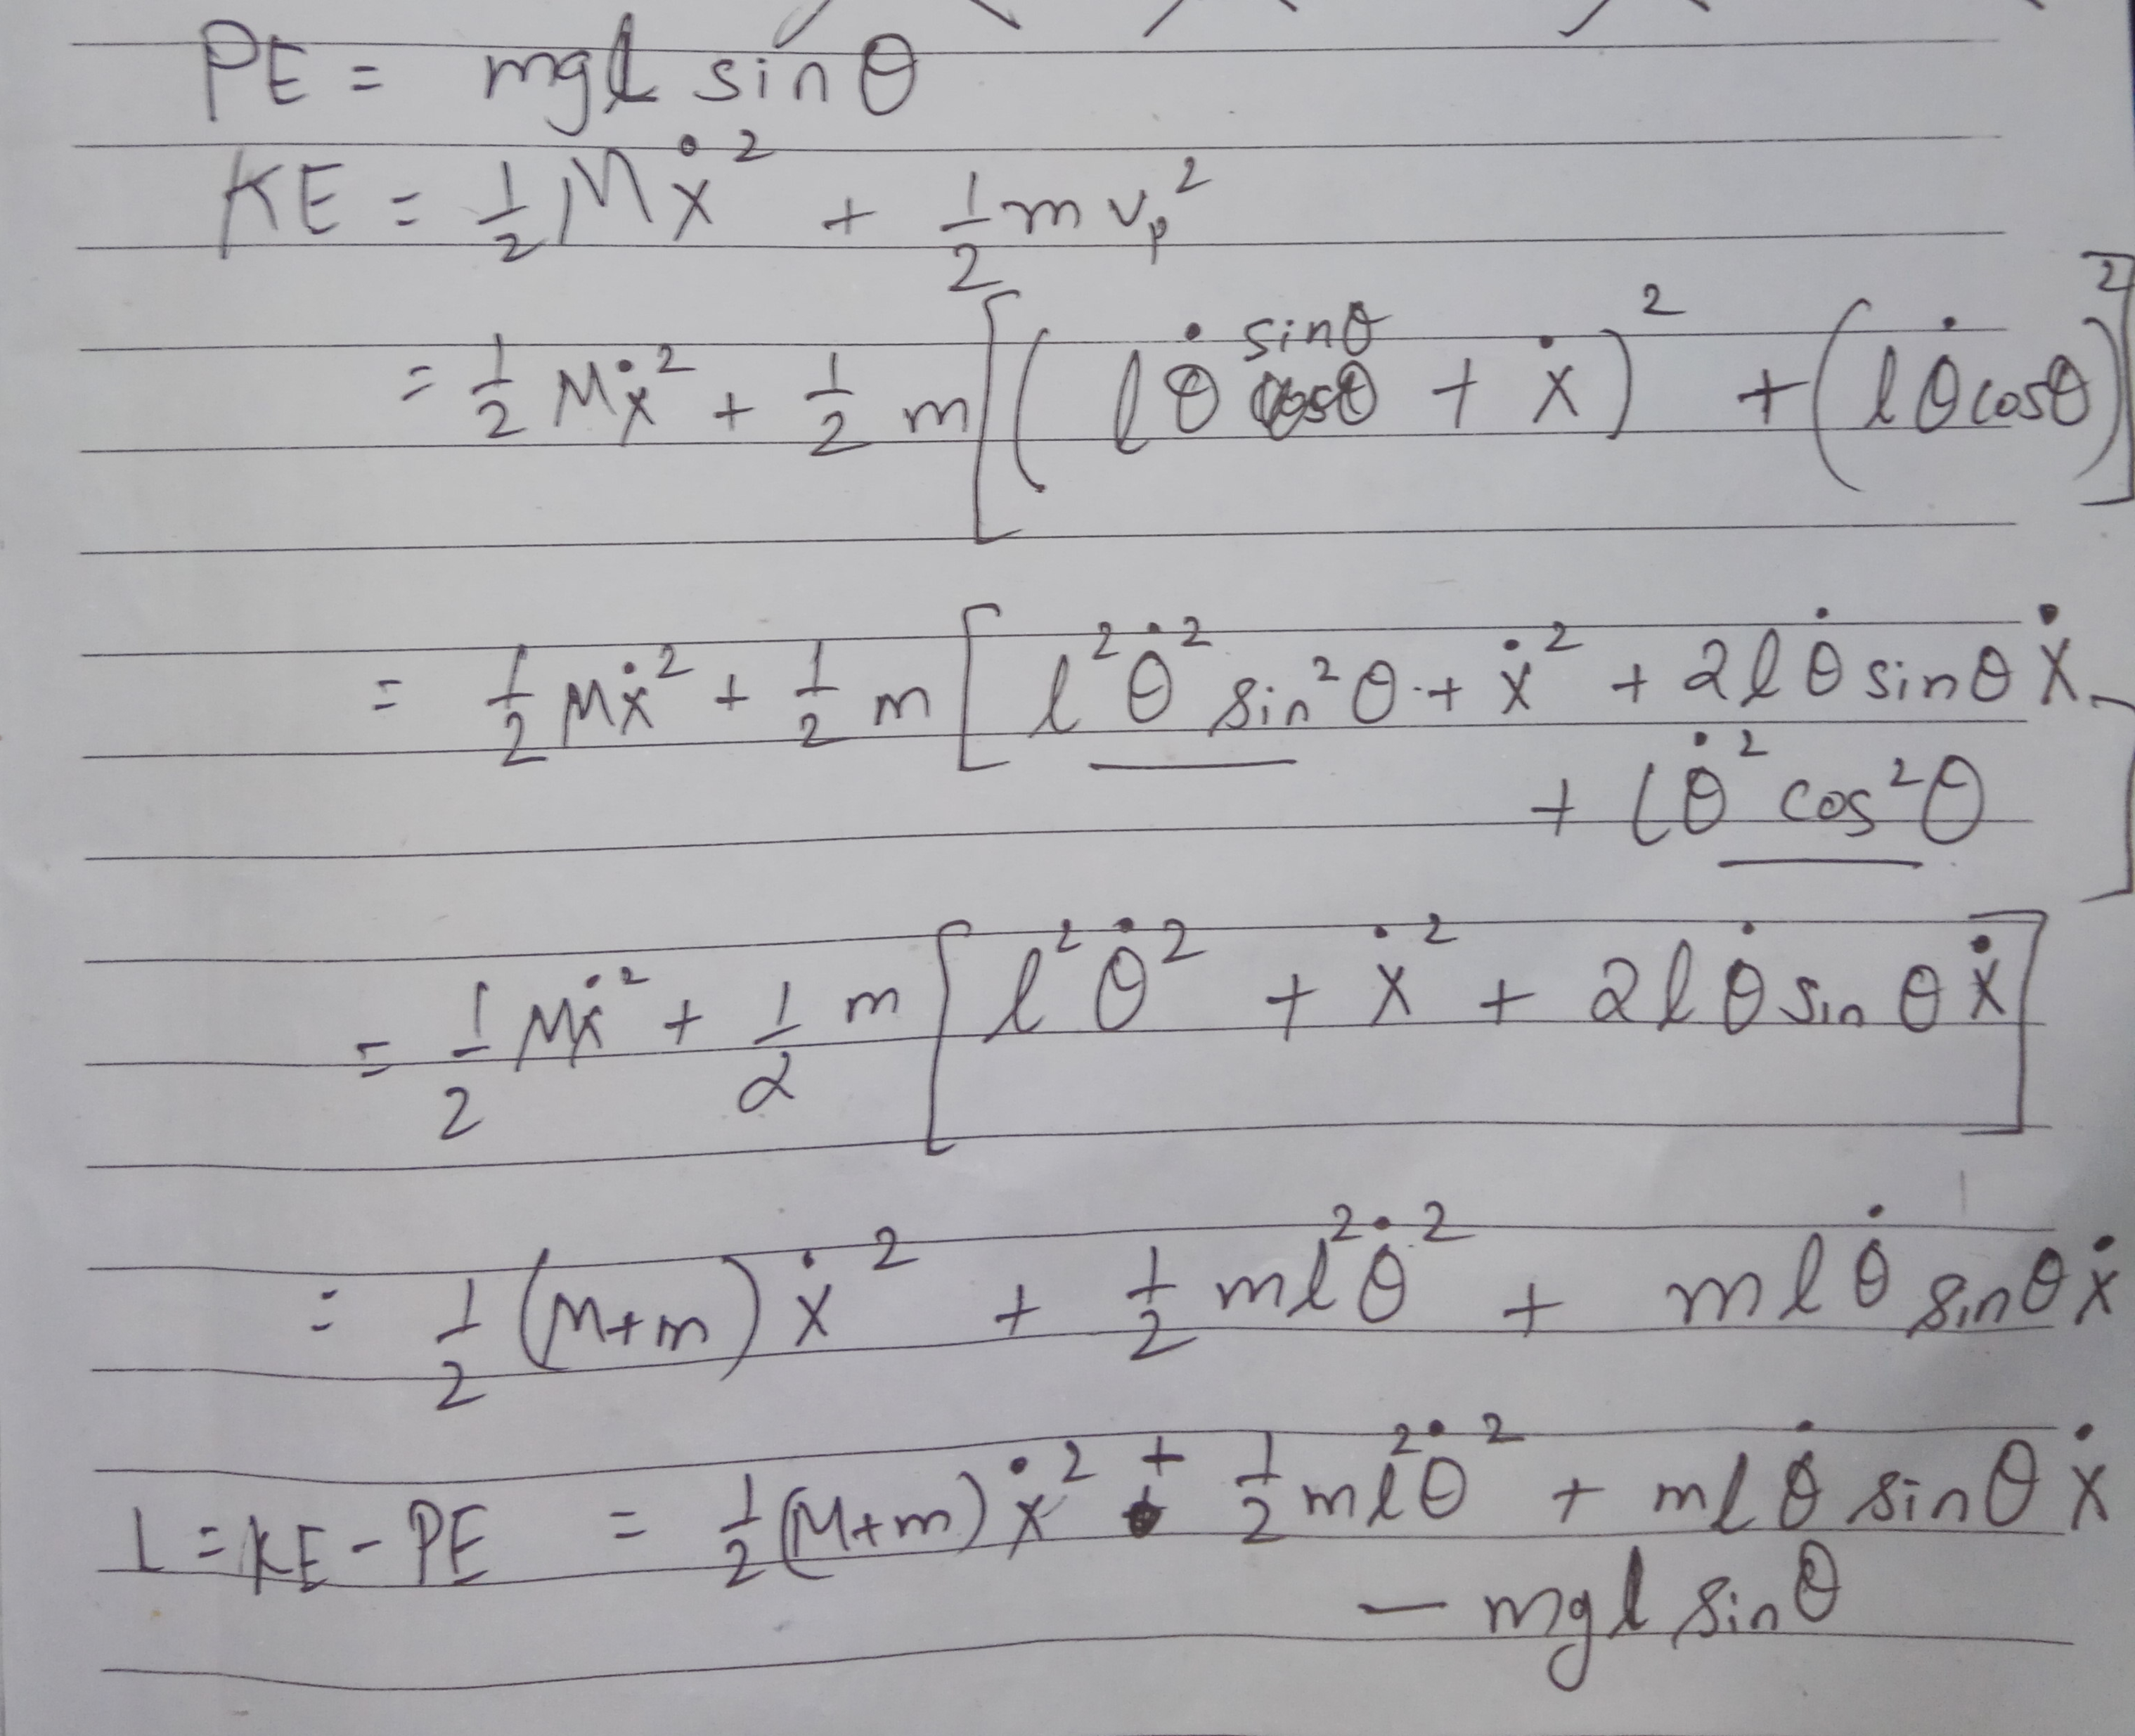 PE = mgl sinθ
KE = 1/2 Mẋ² + 1/2 m vₚ²
= 1/2 Mẋ² + 1/2 m [(lθ̇ sinθ + ẋ)² + (lθ̇ cosθ)²]
= 1/2 Mẋ² + 1/2 m [l²θ̇² sin²θ + ẋ² + 2lθ̇ sinθ ẋ
+ lθ̇² cos²θ]
= 1/2 Mẋ² + 1/2 m [l²θ̇² + ẋ² + 2lθ̇ sinθ ẋ]
= 1/2 (M+m) ẋ² + 1/2 ml²θ̇² + mlθ̇ sinθ ẋ
L = KE - PE = 1/2 (M+m) ẋ² + 1/2 ml²θ̇² + mlθ̇ sinθ ẋ
- mgl sinθ